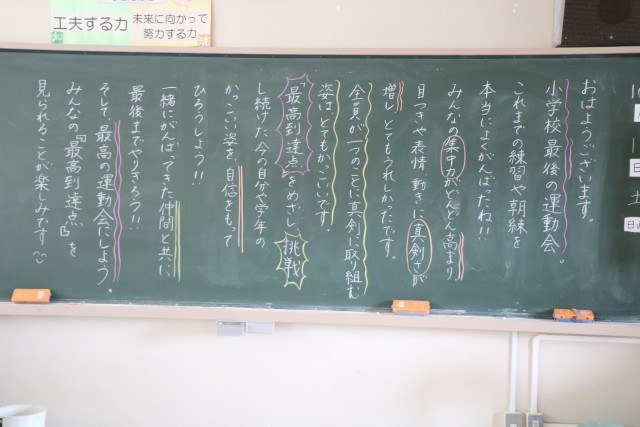 工夫する力
未来に向かって
努力する力
おはようございます。
小学校最後の運動会。
これまでの練習や朝練を
本当によくがんばったね!!
みんなの集中力がどんどん高まり
目つきや表情、動きに真剣さが
増し、とてもうれしかったです。
全員が一つのことに真剣に取り組む
姿はとてもかっこいいです。
最高到達点をめざし、挑戦
し続けた今の自分や学年の
かっこいい姿を、自信をもって
ひろうしよう!!
一緒にがんばってきた仲間と共に
最後までやりきろう!!
そして、最高の運動会にしよう。
みんなの『最高到達点』を
見られることが楽しみです